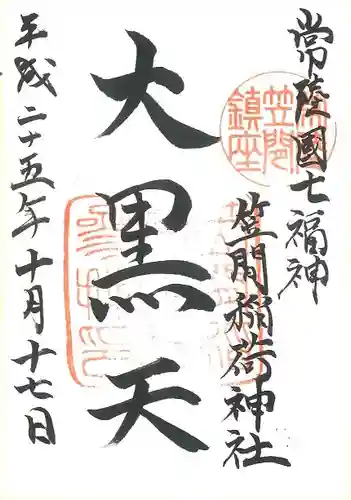 常陸國七福神
笠間鎮座
笠間稲荷神社
大黒天
平成二十五年十月十七日